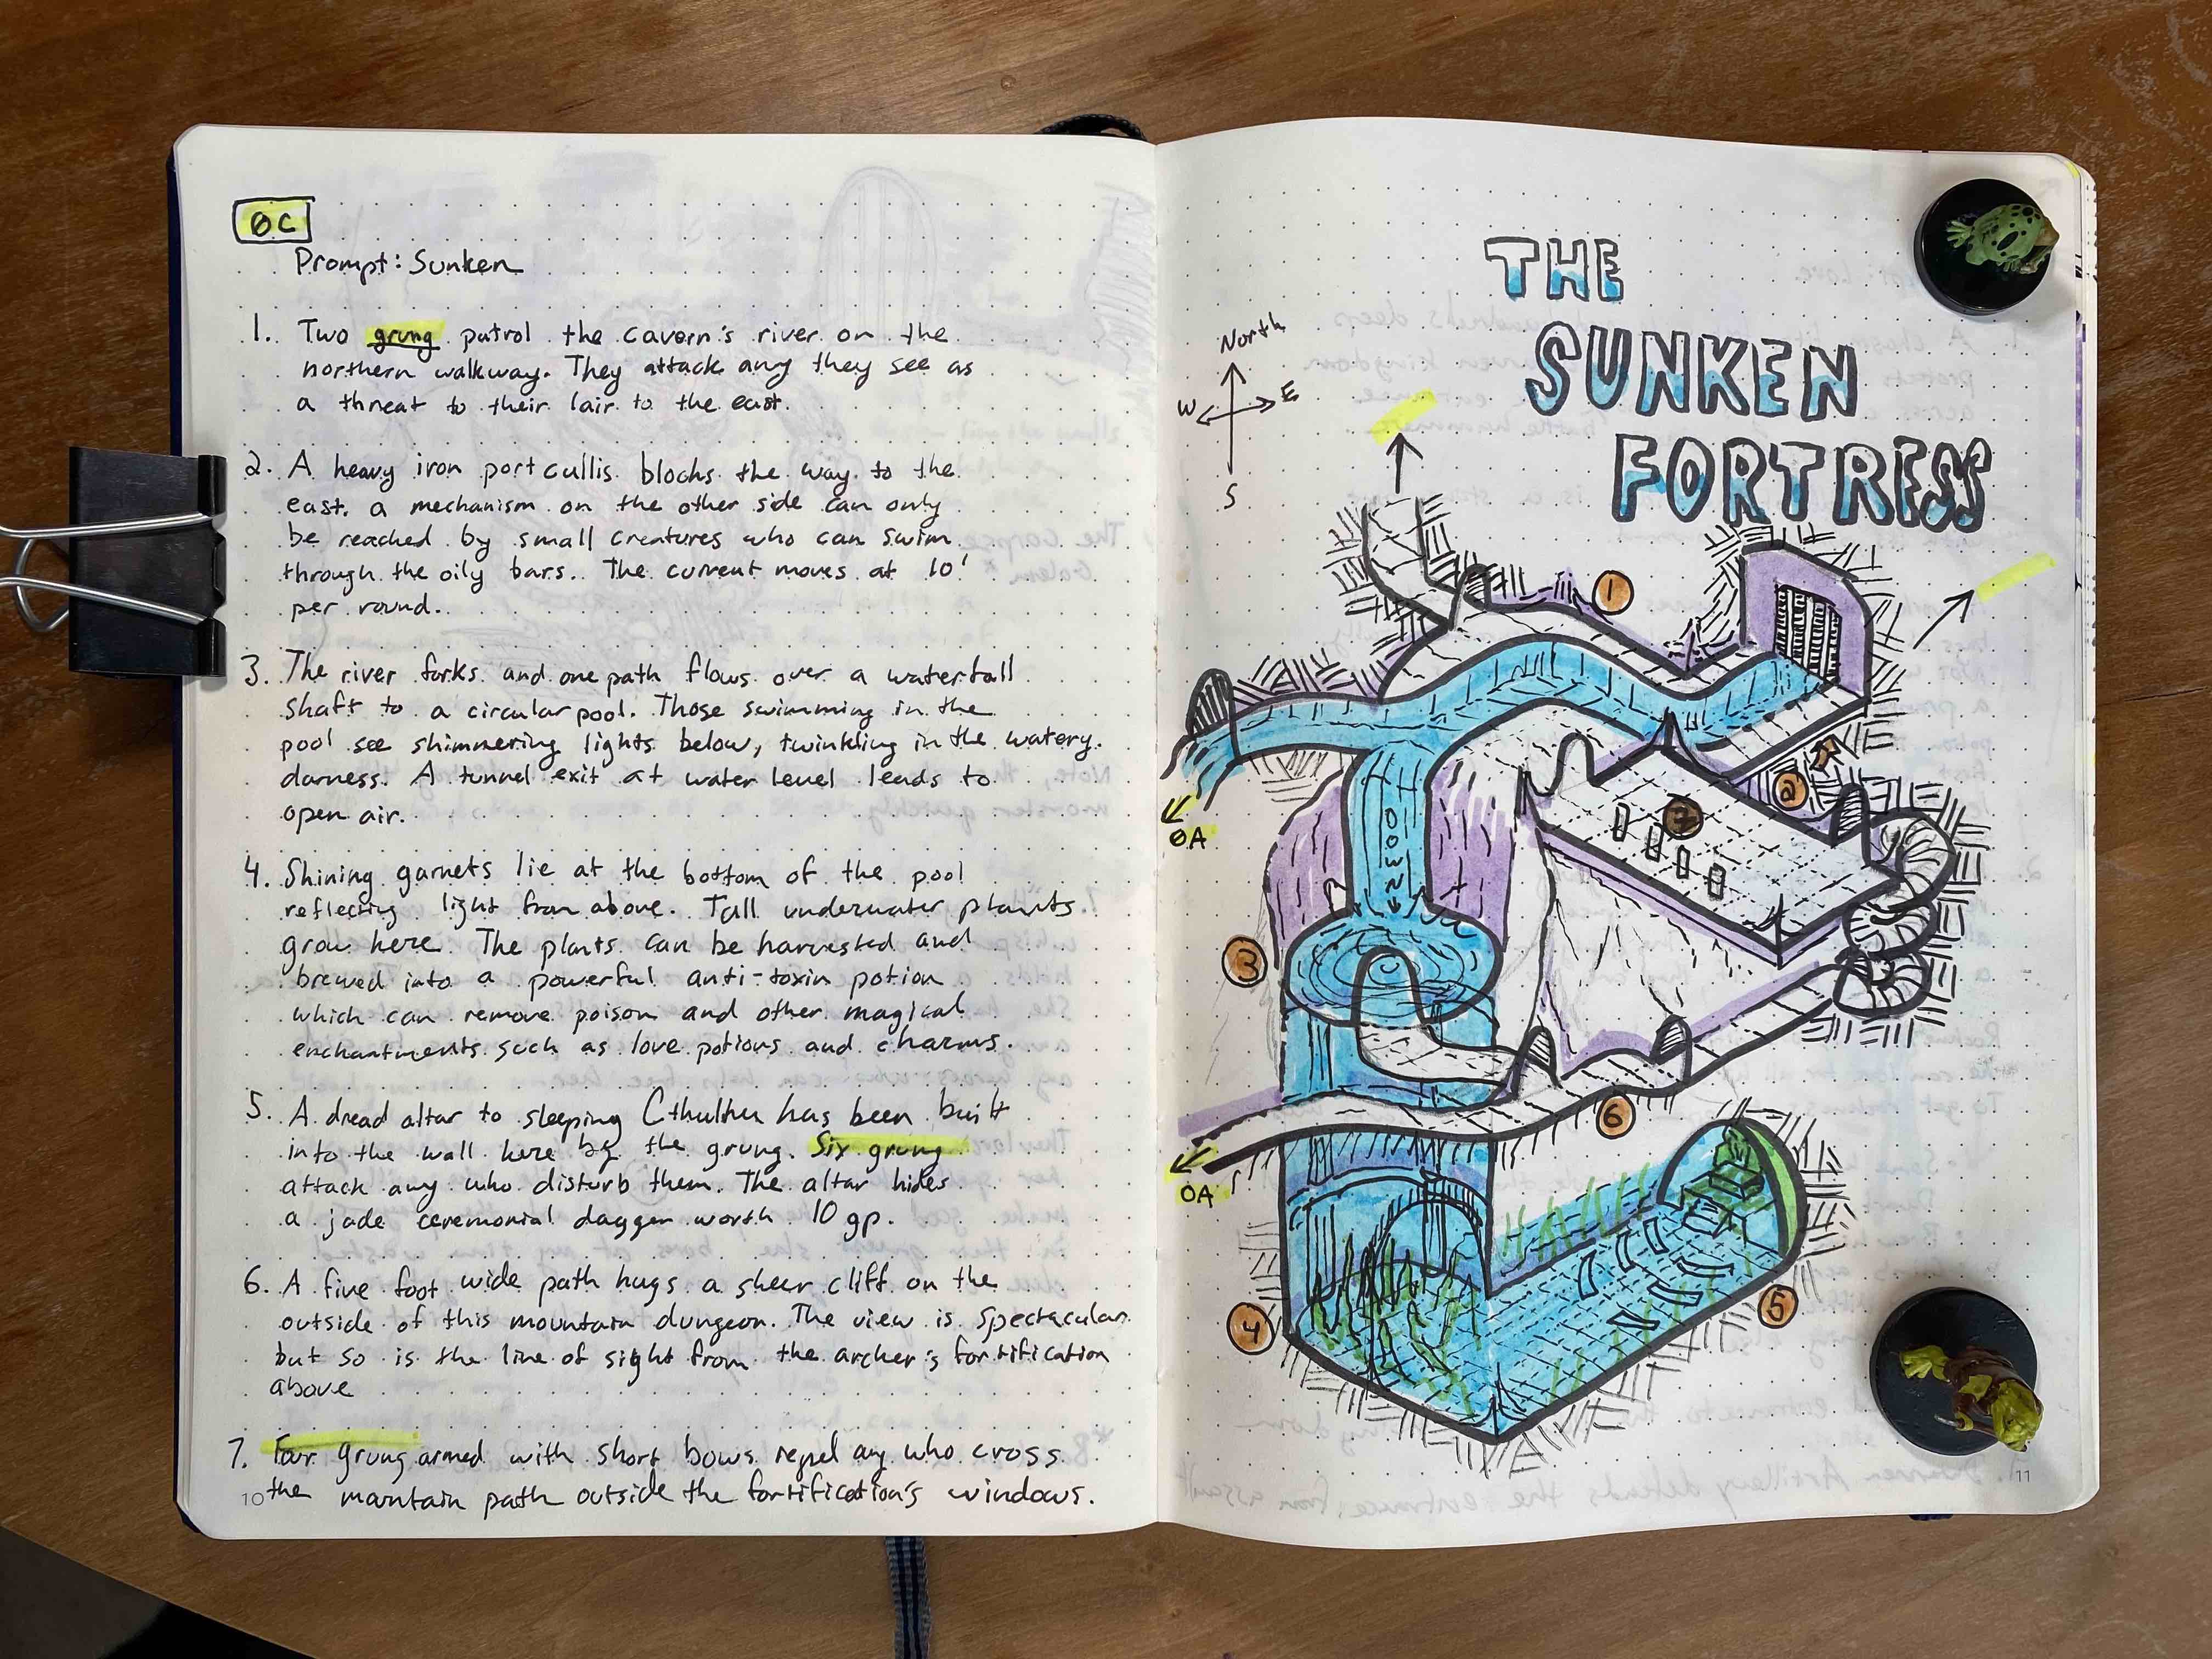 ØC
Prompt: Sunken
1. Two grung patrol the cavern's river on the
northern walkway. They attack any they see as
a threat to their lair to the east.
2. A heavy iron portcullis blocks the way to the
east. a mechanism on the other side can only
be reached by small creatures who can swim
through the oily bars. The current moves at 10'
per round.
3. The river forks and one path flows over a waterfall
shaft to a circular pool. Those swimming in the
pool see shimmering lights below, twinkling in the watery
darness. A tunnel exit at water level leads to
open air.
4. Shining garnets lie at the bottom of the pool
reflecting light from above. Tall underwater plants
grow here. The plants can be harvested and
brewed into a powerful anti-toxin potion
which can remove poison and other magical
enchantments such as love potions and charms.
5. A dread altar to sleeping Cthulhu has been built
into the wall here by the grung. Six grung
attack any who disturb them. The altar hides
a jade ceremonial dagger worth 10 gp.
6. A five foot wide path hugs a sheer cliff on the
outside of this mountain dungeon. The view is spectacular
but so is the line of sight from the archer's fortification
above
7. Four grung armed with short bows repel any who cross
the mountain path outside the fortification's windows.
10
THE
SUNKEN
FORTRESS
North
W
E
S
1
2
7
ØA
DOWN
3
6
OA
4
5
11